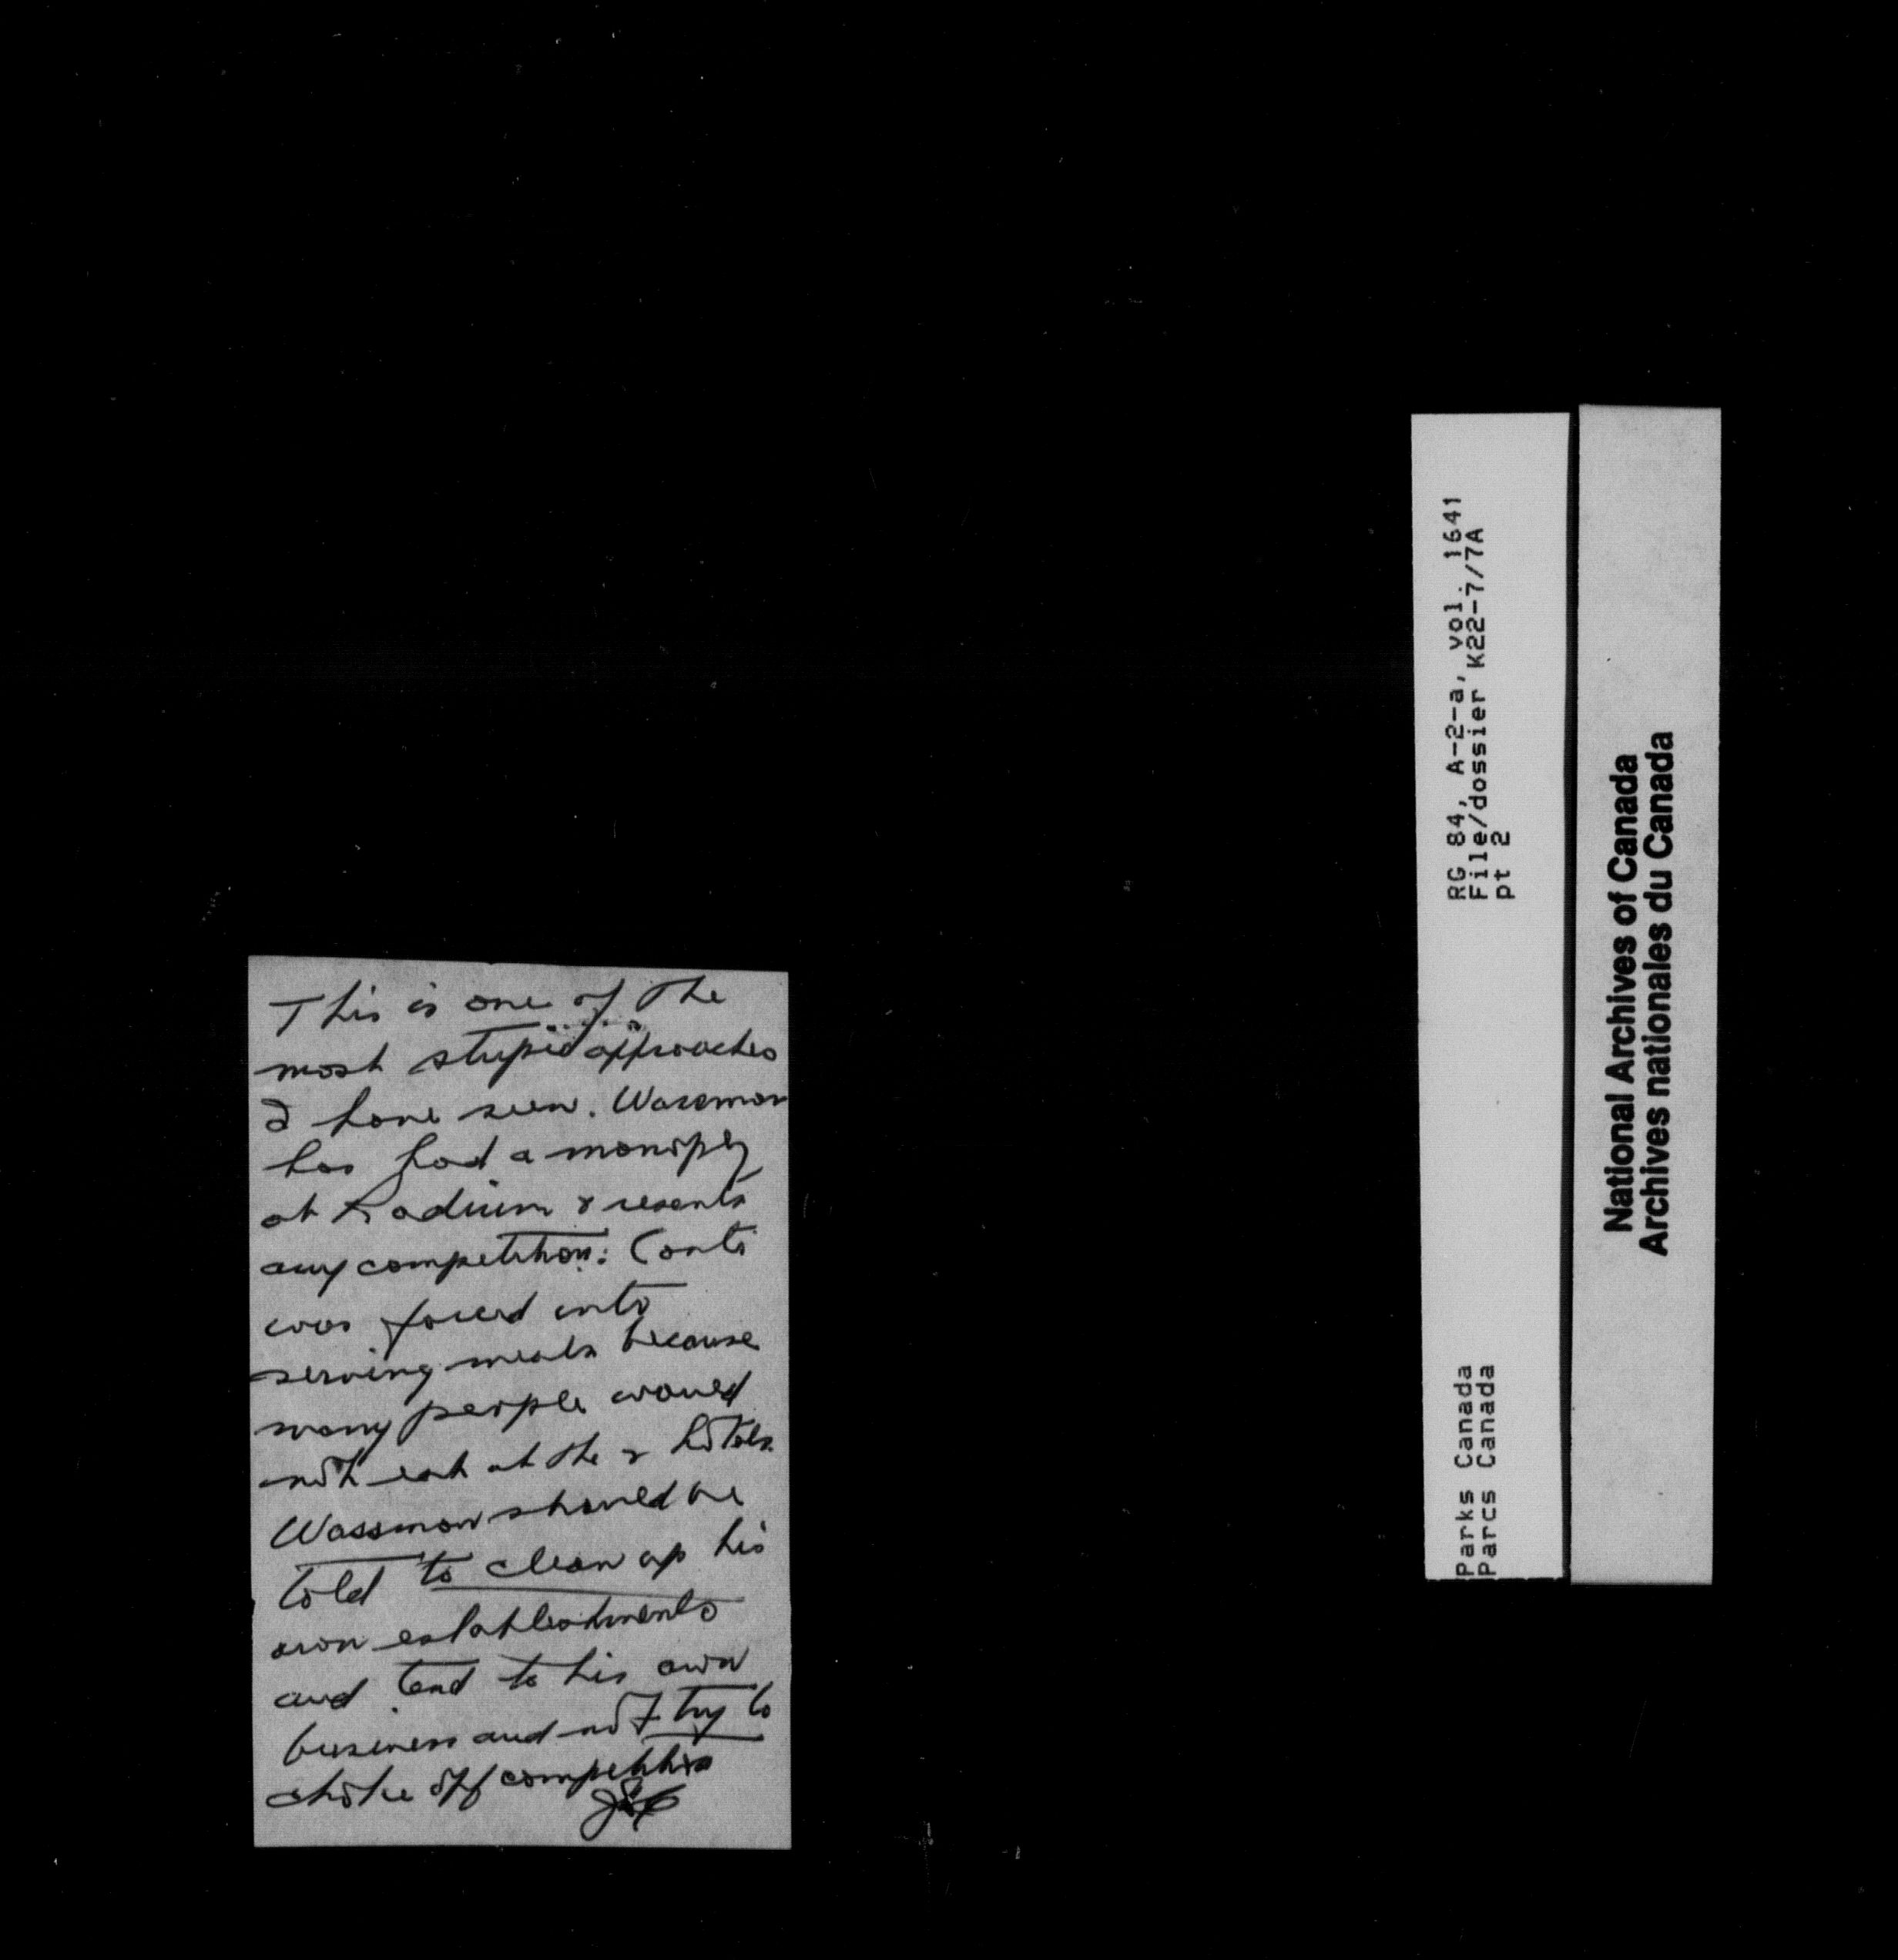 This is one of the
most stupid approaches
I have seen. Wassman
has had a monopoly
at Radium & resents
any competition: Conti
was forced into
serving meals because
many people would
not eat at the 2 hotels.
Wassman should be
told to clean up his
own establishments
and tend to his own
business and not try to
choke off competition
RG 84, A-2-a, vol. 1641
File/dossier K22-7/7A
pt 2
Parks Canada
Parcs Canada
National Archives of Canada
Archives nationales du Canada